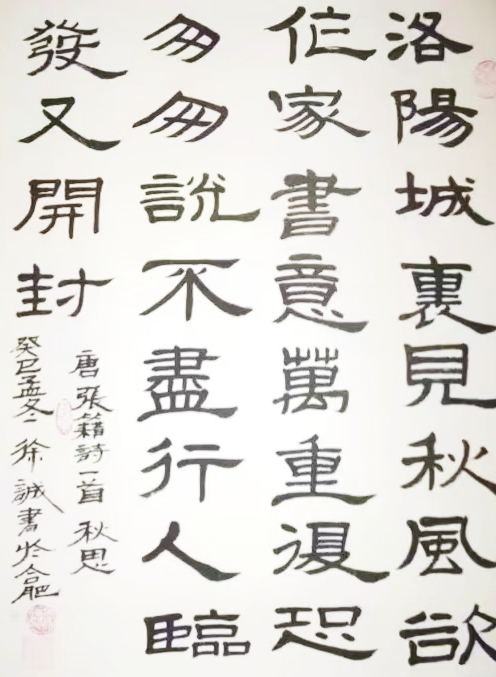 洛陽城裏見秋風欲
作家書意萬重復恐
匆匆說不盡行人臨
發又開封
唐張籍詩一首秋思
癸巳孟冬徐誠書於合肥